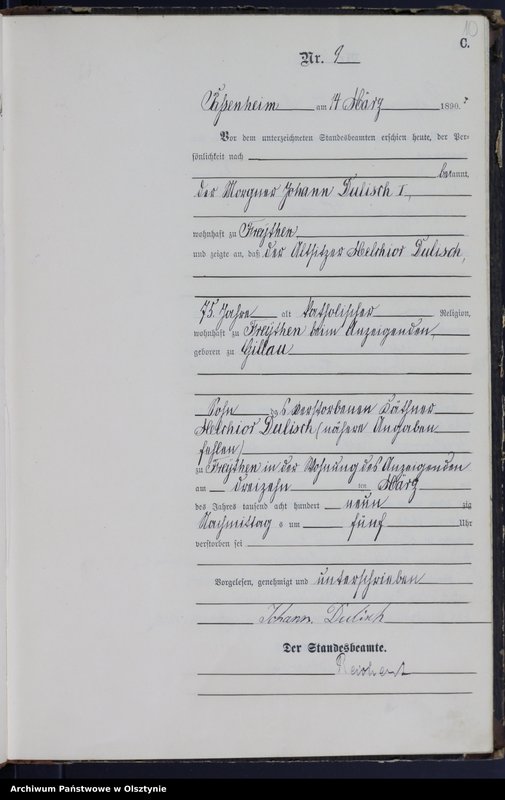 10
C.
Nr. 9
Passenheim am 14 März 1890.
Vor dem unterzeichneten Standesbeamten erschien heute, der Per-
sönlichkeit nach
bekannt,
der Morgner Johann Dulisch I,
wohnhaft zu Freythen
und zeigte an, daß der Altsitzer Melchior Dulisch,
75 Jahre alt katholischer Religion,
wohnhaft zu Freythen beim Anzeigenden,
geboren zu Gillau
Sohn des verstorbenen Käthner
Melchior Dulisch (nähere Angaben
fehlen)
zu Freythen in der Wohnung des Anzeigenden
am dreizehn ten März
des Jahres tausend acht hundert neun zig
Nachmittag s um fünf Uhr
verstorben sei
Vorgelesen, genehmigt und unterschrieben
Johann Dulisch
Der Standesbeamte.
Reichert
Archiwum Państwowe w Olsztynie